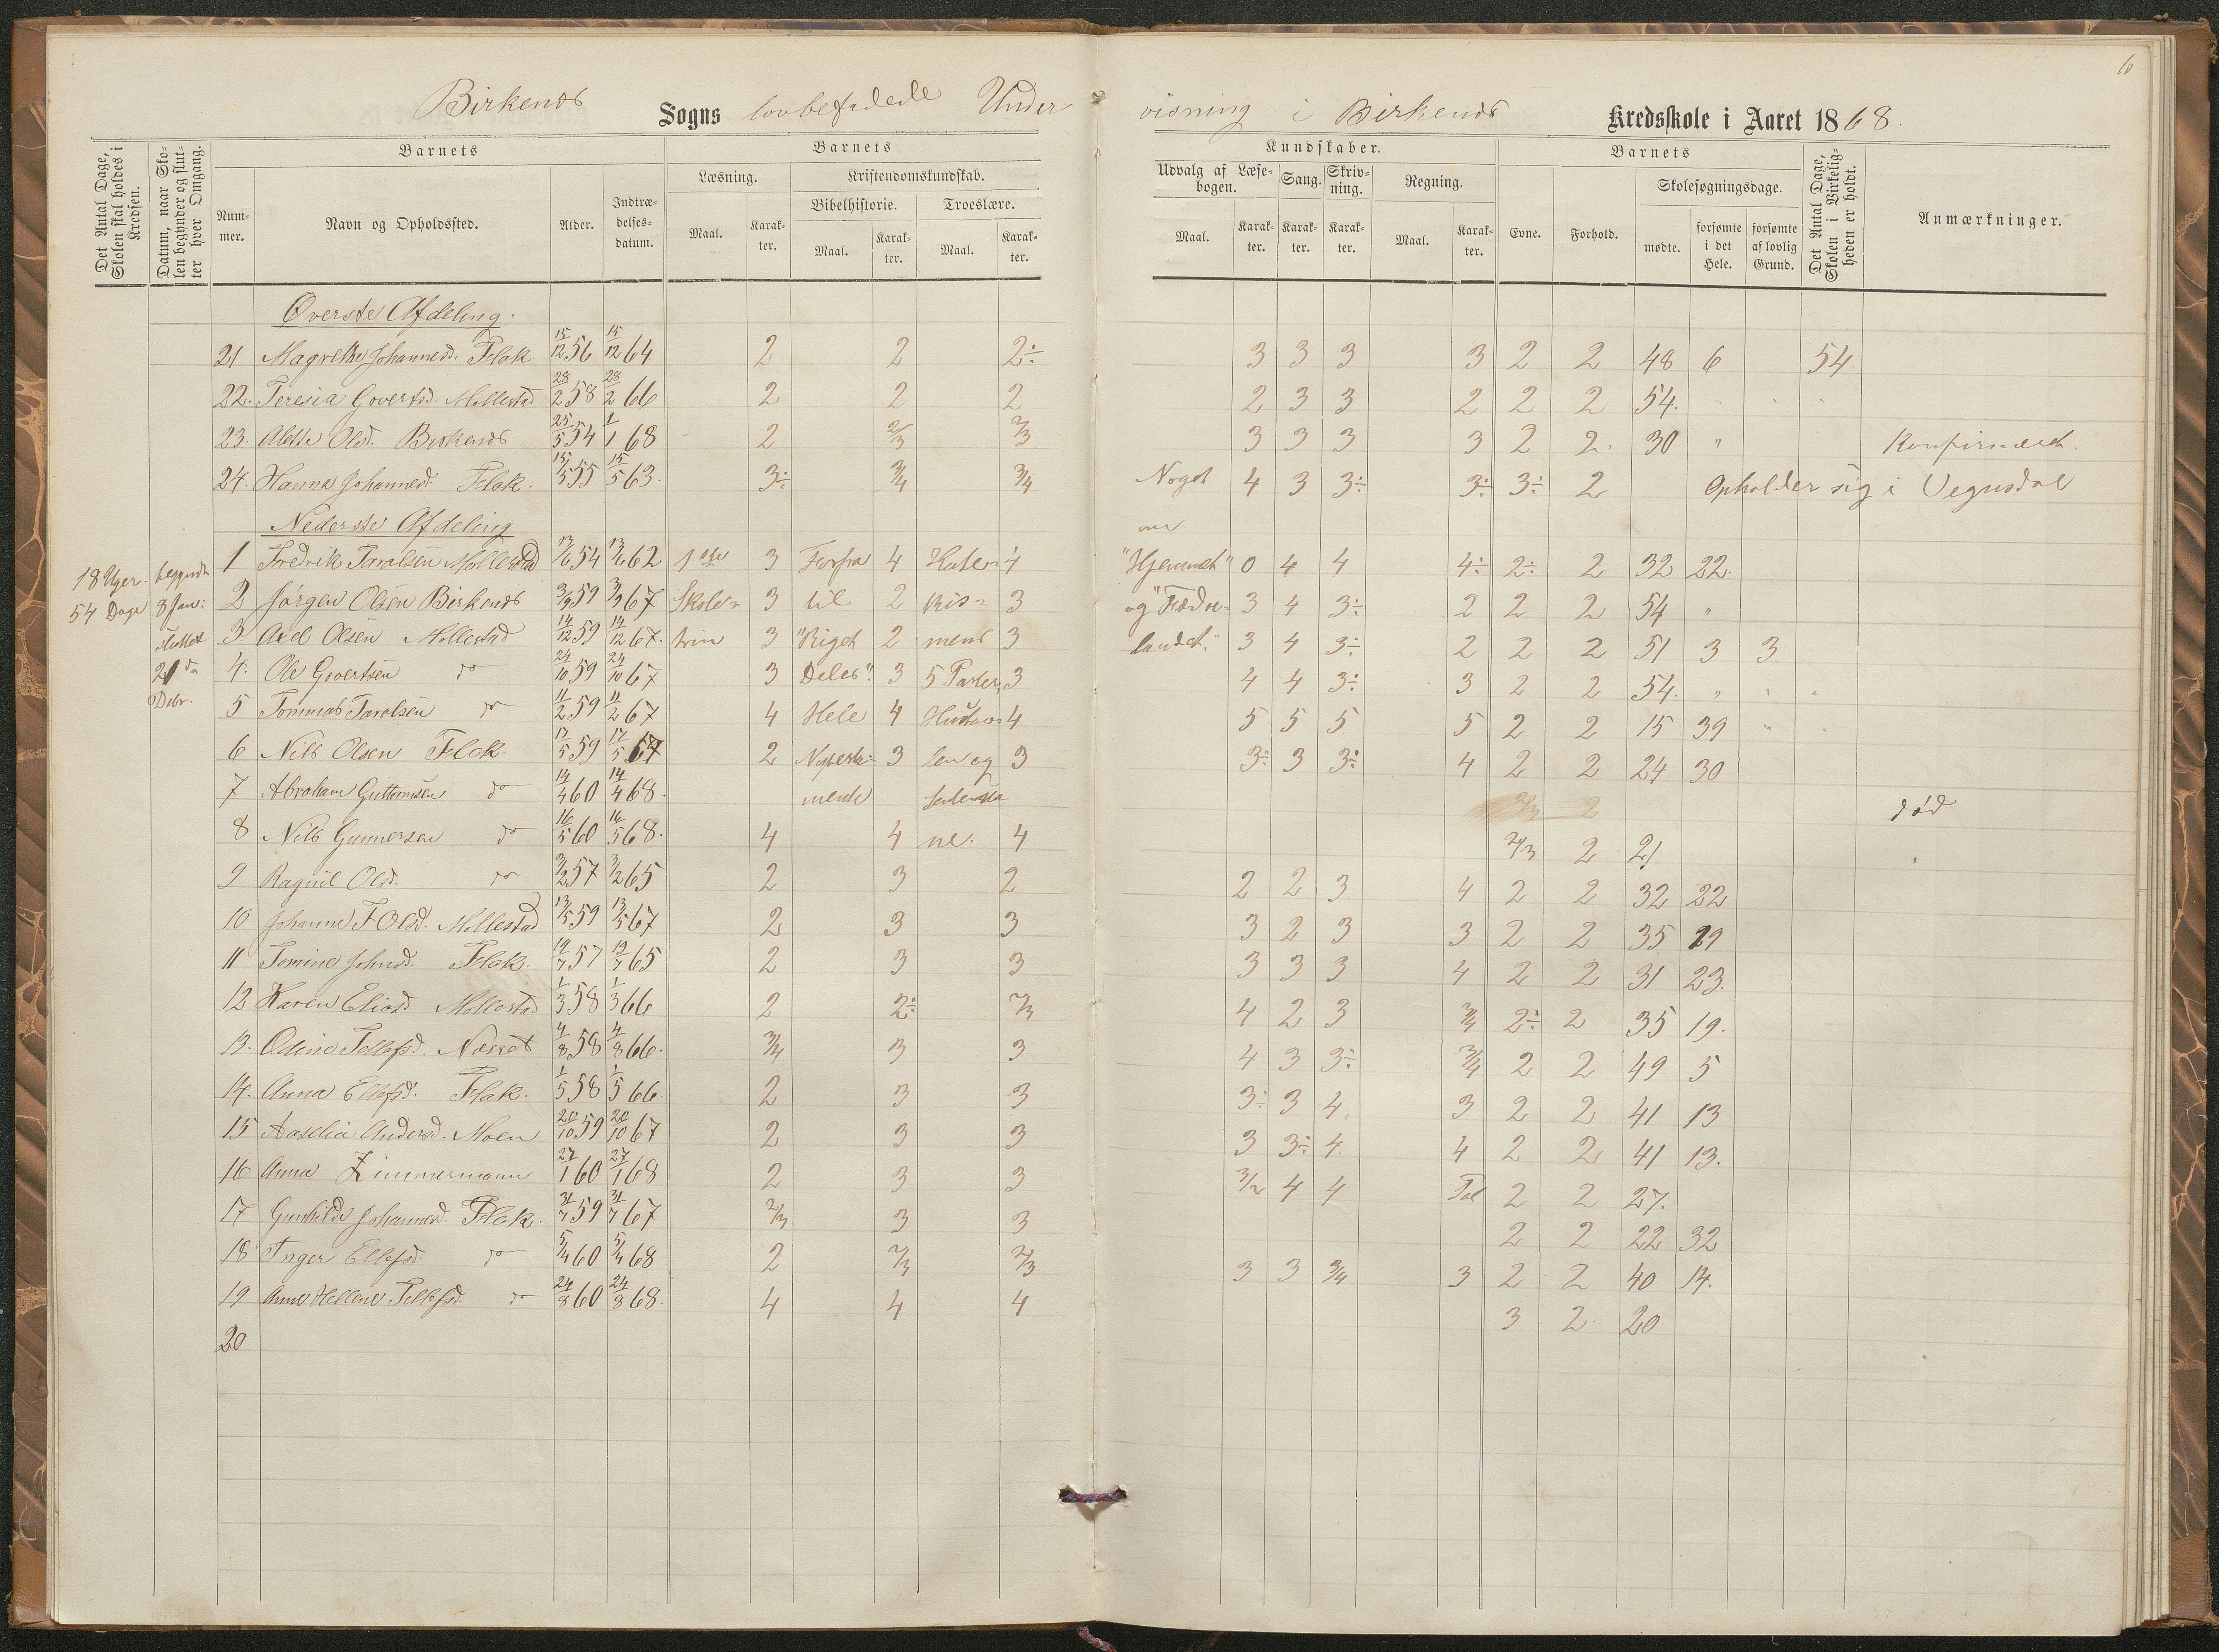 6
Birkenes Sogns lovbefalede Under visning i Birkenes Kredsskole i Aaret 1868.
Det Antal Dage, Skolen skal holdes i Kredsen.
Datum, naar Skolen begynder og slutter hver Omgang.
Barnets
Nummer.
Navn og Opholdssted.
Alder.
Indtrædelses-datum.
Barnets
Læsning.
Maal.
Karakter.
Kristendomskundskab.
Bibelhistorie.
Maal.
Karakter.
Troeslære.
Maal.
Karakter.
Kundskaber.
Udvalg af Læsebogen.
Maal.
Karakter.
Sang.
Karakter.
Skrivning.
Karakter.
Regning.
Maal.
Karakter.
Barnets
Evne.
Forhold.
Skolesøgningsdage.
mødte.
forsømte i det Hele.
forsømte af lovlig Grund.
Det Antal Dage, Skolen i Virkeligheden er holdt.
Anmærkninger.
Øverste Afdeling.
21 Magrethe Johannesd. Flak 15/12 56 15/12 64 2 2 2÷ 3 3 3 3 2 2 48 6 54
22. Teresia Govertsd. Mollestad 28/2 58 28/2 66 2 2 2 2 3 3 2 2 2 54.
23. Alette Olsd. Birkenes 25/5 54 1/1 68 2 2/3 2/3 3 3 3 3 2 2 30 " Konfirmeret.
24. Hanna Johannesd. Flak. 15/5 55 15/5 63. 3÷ 3/4 3/4 Noget 4 3 3÷ 3÷ 3÷ 2 Opholder sig i Vegusdal
Nederste Afdeling om
18 Uger. begyndt 1 Fredrik Taralsen Mollestad 13/6 54 13/6 62 1ste 3 Forfra 4 4 "Hjemmet" 0 4 4 4÷ 2÷ 2 32 22.
54 Dage 8 Jan: 2 Jørgen Olsen Birkenes 3/9 59 3/9 67 Skole= 3 til 2 3 og "Fædre= 3 4 3÷ 2 2 2 54 "
sluttet 3. Axel Olsen Mollestad 14/12 59 14/12 67. trin 3 "Riget 2 3 landet." 3 4 3÷ 2 2 2 51 3 3
21de 4. Ole Govertsen do 24/10 59 24/10 67 3 Deles". 3 5 Parter, 3 4 4 3÷ 3 2 2 54. "
Debr. 5 Tommas Taralsen do 11/2 59 11/2 67 4 Hele 4 Hustav= 4 5 5 5 5 2 2 15 39 "
6 Nils Olsen Flak. 17/5 59 17/5 67 2 Nytesta= 3 len og 3 3÷ 3 3÷ 4 2 2 24 30
7 Abraham Guttormsen do 14/4 60 14/4 68. mente død
8 Nils Gunnersen do 16/5 60 16/5 68. 4 4 ne. 4 2/3 2 21
9 Ragnil Olsd. do 3/2 57 3/2 65 2 3 2 2 2 3 4 2 2 32 22
10 Johanne F Olsd. Mollestad 13/5 59 13/5 67 2 3 3 3 2 3 3 2 2 35 19
11 Tomine Johnsd. Flak. 19/7 57 19/7 65 2 3 3 3 3 3 4 2 2 31 23.
12 Karen Eliasd. Mollestad 1/3 58 1/3 66 2 2÷ 2/3 4 2 3 3/4 2÷ 2 35 19.
13. Odine Tellefsd. Næset 4/8 58 4/8 66. 3/4 3 3 4 3 3÷ 3/4 2 2 49 5
14. Anna Ellefsd. Flak. 1/5 58 1/5 66. 2 3 3 3÷ 3 4. 3 2 2 41 13
15 Aaselia Andersd. Moen 20/10 59 20/10 67 2 3 3 3 3÷ 4. 4 2 2 41 13.
16 Anna Zimmermann 27/1 60 27/1 68 2 3 3 3/2 4 4 Tal 2 2 27.
17 Gunhilde Johannesd. Flak. 31/7 59 31/7 67 2/3 3 3 2 2 22 32
18 Inger Ellefsd. do 5/4 60 5/4 68 2 2/3 2/3 3 3 3/4 3 2 2 40 14.
19 Anne Hellene Tellefsd. do 24/8 60 24/8 68. 4 4 4 3 2 20
20